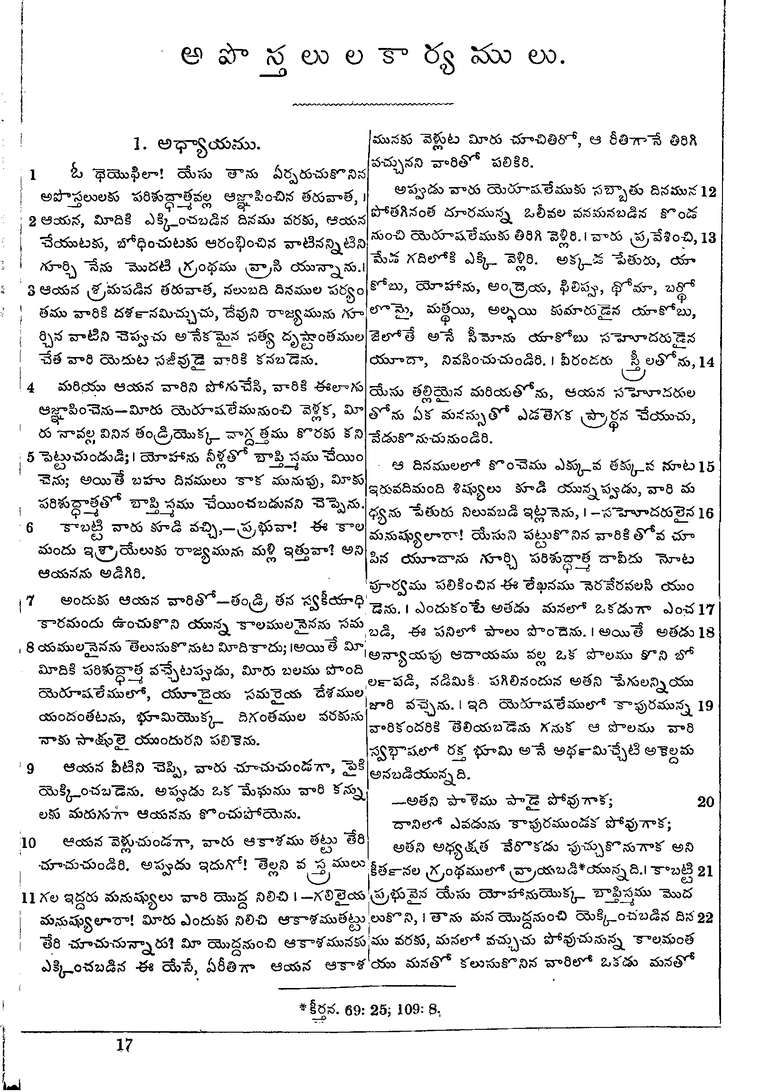 అపొస్తలుల కార్యములు.
1. అధ్యాయము.
1 ఓ థెయొఫిలా! యేసు తాను ఏర్పరుచుకొనిన
అపొస్తలులకు పరిశుద్ధాత్మవల్ల ఆజ్ఞాపించిన తరువాత, ।
2 ఆయన, మీదికి ఎక్కించబడిన దినము వరకు, ఆయన
చేయుటకు, బోధించుటకు ఆరంభించిన వాటినన్నిటిని
గూర్చి నేను మొదటి గ్రంథము వ్రాసి యున్నాను.।
3 ఆయన శ్రమపడిన తరువాత, నలుబది దినముల పర్యం
తము వారికి దర్శనమిచ్చుచు, దేవుని రాజ్యమును గూ
ర్చిన వాటిని చెప్పుచు అనేకమైన సత్య దృష్టాంతముల
చేత వారి యెదుట సజీవుడై వారికి కనబడెను.
4 మరియు ఆయన వారిని పోగుచేసి, వారికి ఈలాగు
ఆజ్ఞాపించెను—మీరు యెరూషలేమునుంచి వెళ్లక, మీ
రు నావల్ల వినిన తండ్రియొక్క వాగ్దత్తము కొరకు కని
5 పెట్టుచుండుడి;। యోహాను నీళ్లతో బాప్తిస్మము చేయిం
చెను; అయితే బహు దినములు కాక మునుపు, మీకు
పరిశుద్ధాత్మతో బాప్తిస్మము చేయించబడునని చెప్పెను.
6 కాబట్టి వారు కూడి వచ్చి,—ప్రభువా! ఈ కాల
మందు ఇశ్రాయేలుకు రాజ్యమును మళ్లి ఇత్తువా? అని
ఆయనను అడిగిరి.
7 అందుకు ఆయన వారితో—తండ్రి, తన స్వకీయాధి
కారమందు ఉంచుకొని యున్న కాలములనైనను సమ
8 యములనైనను తెలుసుకొనుట మీదికాదు;।అయితే మీ
మీదికి పరిశుద్ధాత్మ వచ్చేటప్పుడు, మీరు బలము పొంది
యెరూషలేములో, యూదైయ సమరైయ దేశముల
యందంతటను, భూమియొక్క దిగంతముల వరకును
నాకు సాక్షులై యుందురని పలికెను.
9 ఆయన వీటిని చెప్పి, వారు చూచుచుండగా, పైకి
యెక్కించబడెను. అప్పుడు ఒక మేఘము వారి కన్ను
లకు మరుగుగా ఆయనను కొంచుపోయెను.
10 ఆయన వెళ్లుచుండగా, వారు ఆకాశము తట్టు తేరి
చూచుచుండిరి. అప్పుడు ఇదుగో! తెల్లని వస్త్రములు
11 గల ఇద్దరు మనుష్యులు వారి యొద్ద నిలిచి।—గలిలైయ
మనుష్యులారా! మీరు ఎందుకు నిలిచి ఆకాశముతట్టు
తేరి చూచుచున్నారు? మీ యొద్దనుంచి ఆకాశమునకు
ఎక్కించబడిన ఈ యేసే, ఏరీతిగా ఆయన ఆకాశ
మునకు వెళ్లుట మీరు చూచితిరో, ఆ రీతిగానే తిరిగి
వచ్చునని వారితో పలికిరి.
అప్పుడు వారు యెరూషలేముకు సబ్బాతు దినమున 12
పోతగినంత దూరమున్న ఒలీవల వనమనబడిన కొండ
నుంచి యెరూషలేముకు తిరిగి వెళ్లిరి.। వారు ప్రవేశించి, 13
మేడ గదిలోకి ఎక్కి వెళ్లిరి. అక్కడ పేతురు, యా
కోబు, యోహాను, అంద్రెయ, ఫిలిప్పు, థోమా, బర్థో
లొమై, మత్తయి, అల్ఫయి కుమారుడైన యాకోబు,
జెలోతే అనే సీమోను యాకోబు సహోదరుడైన
యూదా, నివసించుచుండిరి.। వీరందరు స్త్రీలతోను, 14
యేసు తల్లియైన మరియతోను, ఆయన సహోదరుల
తోను ఏక మనస్సుతో ఎడతెగక ప్రార్థన చేయుచు,
వేడుకొనుచునుండిరి.
ఆ దినములలో కొంచెము ఎక్కువ తక్కువ నూట 15
ఇరువదిమంది శిష్యులు కూడి యున్నప్పుడు, వారి మ
ధ్యను పేతురు నిలువబడి ఇట్లనెను, ।—సహోదరులైన 16
మనుష్యులారా! యేసుని పట్టుకొనిన వారికి తోవ చూ
పిన యూదాను గూర్చి పరిశుద్ధాత్మ దావీదు నోట
పూర్వము పలికించిన ఈ లేఖనము నెరవేరవలసి యుం
డెను. । ఎందుకంటే అతడు మనలో ఒకడుగా ఎంచ 17
బడి, ఈ పనిలో పాలు పొందెను. ।అయితే అతడు 18
అన్యాయపు ఆదాయము వల్ల ఒక పొలము కొని బో
ర్లపడి, నడిమికి పగిలినందున అతని పేగులన్నియు
జారి వచ్చెను. । ఇది యెరూషలేములో కాపురమున్న 19
వారికందరికి తెలియబడెను గనుక ఆ పొలము వారి
స్వభాషలో రక్త భూమి అనే అర్థమిచ్చేటి అకెల్దమ
అనబడియున్నది.
—అతని పాళెము పాడై పోవుగాక; 20
దానిలో ఎవడును కాపురముండక పోవుగాక;
అతని అధ్యక్షత వేరొకడు పుచ్చుకొనుగాక అని
కీర్తనల గ్రంథములో వ్రాయబడి*యున్నది.। కాబట్టి 21
ప్రభువైన యేసు యోహానుయొక్క బాప్తిస్మము మొద
లుకొని, । తాను మన యొద్దనుంచి యెక్కించబడిన దిన 22
ము వరకు, మనలో వచ్చుచు పోవుచునున్న కాలమంత
యు మనతో కలుసుకొనిన వారిలో ఒకడు మనతో
*కీర్తన. 69: 25; 109: 8.
17